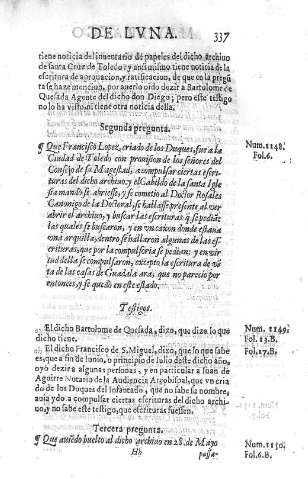 DE LVNA. 337
tiene noticia del inuentario de papeles del dicho archiuo
de santa Cruz de Toledo: y ansimismo tiene noticia de la
escritura de aprouacion, y ratificacion, de que en la pregũ
ta se haze mencion, por auerlo oido dezir a Bartolome de
Quesada Agente del dicho don Diego; pero este testigo
no lo ha visto, ni tiene otra noticia della.
Segunda pregunta.
Que Francisco Lopez, criado de los Duques, fue a la
Ciudad de Toledo con prouision de los señores del
Consejo de su Magestad, a compulsar ciertas escri-
turas del dicho archiuo, y el Cabildo de la santa Igle
sia mandò se abriesse, y se cometiò al Doctor Rosales
Canonigo de la Doctoral, se hallasse presente al ver
abrir el archiuo, y buscar las escrituras q̃ se pediã:
las quales se buscaron, y en vn caxon donde estaua
vna arquilla, dentro se hallaron algunas de las es-
crituras, que por la compulsoria se pedian: y en vir
tud della se compulsaron, excepto la escritura de vẽ
ta de las casas de Guadalaxara, que no pareciò por
entonces, y se quedò en este estado.
Num. 1148.
Fol. 6.
Testigos.
El dicho Bartolome de Quesada, dixo, que dize lo que
dicho tiene.
El dicho Francisco de S. Miguel, dixo, que lo que sabe
es, que a fin de Iunio, o principio de Iulio deste dicho año,
oyò dezir a algunas personas, y en particular a Iuan de
Aguirre Notario de la Audiencia Arçobispal, que vn cria
do de los Duques del Infantado, que no sabe su nombre,
auia ydo a compulsar ciertas escrituras del dicho archi-
uo, y no sabe este testigo, que escrituras fuessen.
Num. 1149.
Fol. 13. B.
Fol. 17. B.
Tercera pregunta.
Que auiẽdo buelto al dicho archiuo en 28. de Mayo
Num. 1150.
Fol. 6. B.
Hh passa-